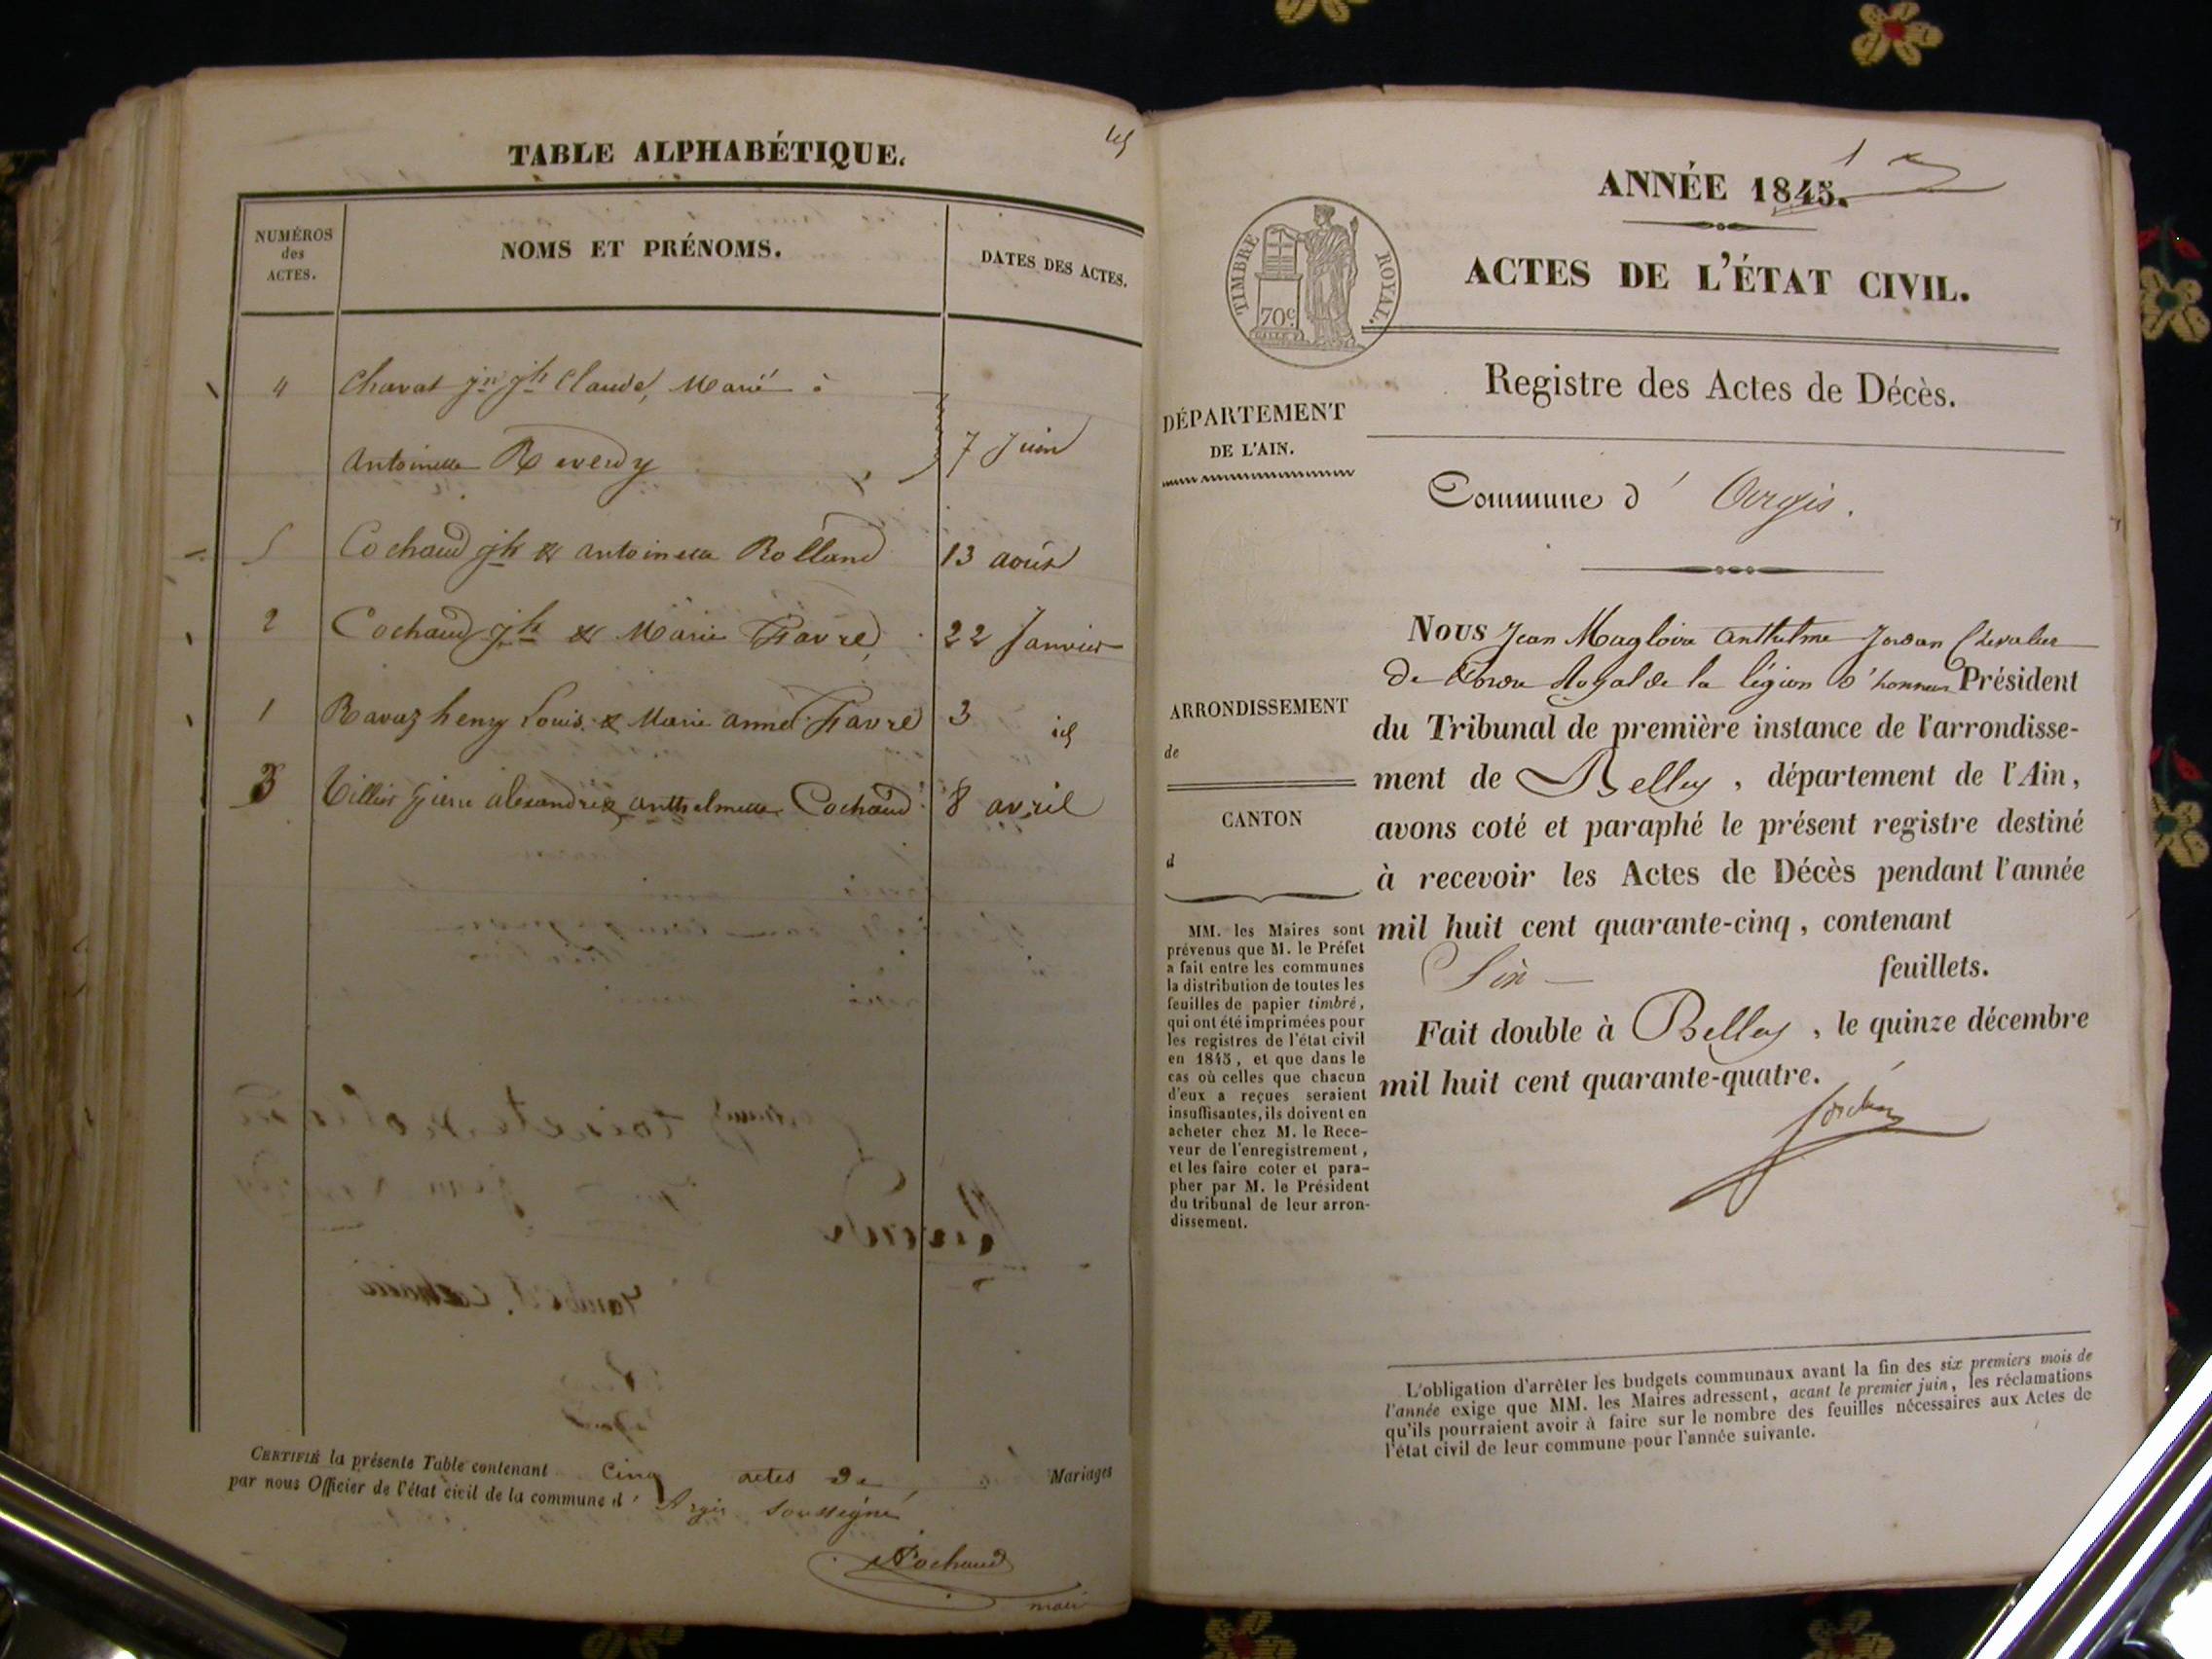 TABLE ALPHABÉTIQUE.
NUMÉROS
des
ACTES.
NOMS ET PRÉNOMS.
DATES DES ACTES.
4 Charat jn jh Claude, Marié à
Antoinette Reverdy 7 Juin
5 Cochaud jh & Antoinette Rolland 13 août
2 Cochaud jh & Marie Favre 22 Janvier
1 Ravaz henry Louis & Marie anne Favre 3 id
3 pierre alexandre & anthelmette Cochaud 8 avril
CERTIFIÉ la présente Table contenant cinq actes de Mariages
par nous Officier de l'état civil de la commune d'Argis soussigné
Cochaud
maire
1
ANNÉE 1845.
TIMBRE ROYAL.
70c
ACTES DE L'ÉTAT CIVIL.
Registre des Actes de Décès.
DÉPARTEMENT
DE L'AIN.
Commune d'Argis.
ARRONDISSEMENT
de
CANTON
d
MM. les Maires sont
prévenus que M. le Préfet
a fait entre les communes
la distribution de toutes les
feuilles de papier timbré,
qui ont été imprimées pour
les registres de l'état civil
en 1845, et que dans le
cas où celles que chacun
d'eux a reçues seraient
insuffisantes, ils doivent en
acheter chez M. le Rece-
veur de l'enregistrement,
et les faire coter et para-
pher par M. le Président
du tribunal de leur arron-
dissement.
Nous Jean Magloire Anthelme Jordan Chevalier
de l'ordre Royal de la légion d'honneur Président
du Tribunal de première instance de l'arrondisse-
ment de Belley, département de l'Ain,
avons coté et paraphé le présent registre destiné
à recevoir les Actes de Décès pendant l'année
mil huit cent quarante-cinq, contenant
Six feuillets.
Fait double à Belley, le quinze décembre
mil huit cent quarante-quatre.
Jordan
L'obligation d'arrêter les budgets communaux avant la fin des six premiers mois de
l'année exige que MM. les Maires adressent, avant le premier juin, les réclamations
qu'ils pourraient avoir à faire sur le nombre des feuilles nécessaires aux Actes de
l'état civil de leur commune pour l'année suivante.